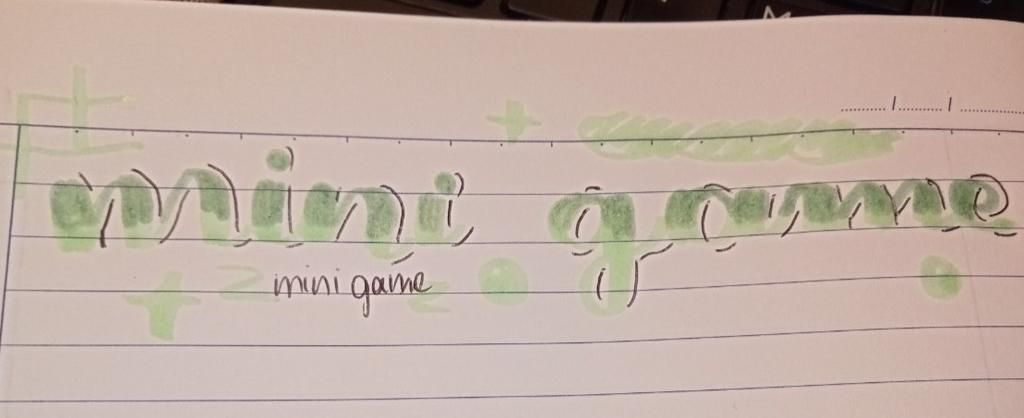 mini game
mini game